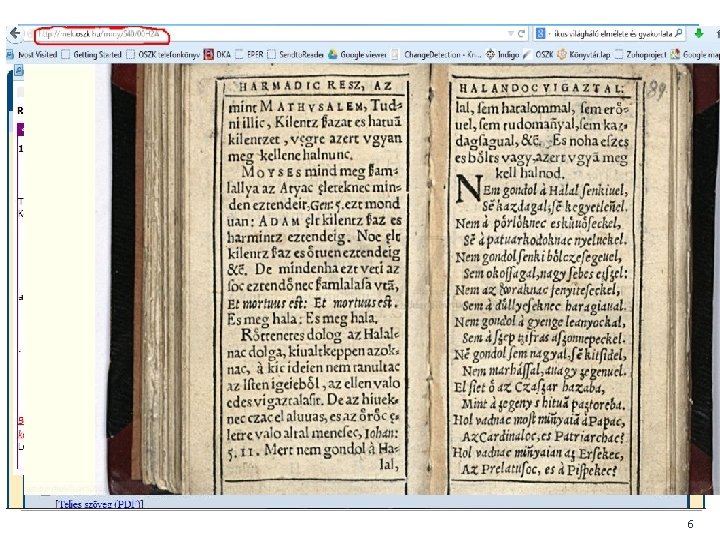 http://mek.oszk.hu/mirog/540/00142A
ikus világháló elmélete és gyakorlata
Most Visited Getting Started OSZK telefonkönyv DKA EPER SendtoReader Google viewer ChangeDetection - Kn... Indigo OSZK Könyvtár.lap Zohoproject Google map
HARMADIC RESZ, AZ
mint MATHVSALEM, Tud-
ni illic, Kilentz ſzazat es hatuā
kilentzet, vegre azert vgyan
meg kellene halnunc.
MOYSES mind meg ſzam-
lallya az Atyac eleteknec min-
den eztendeit, Gen: 5. ezt mond
uan: ADAM elt kilentz ſzaz es
harmintz eztendeig. Noe elt
kilentz ſzaz es ötuen eztendeig
&c. De mindenha ezt veti az
ſoc eztendőnec ſzamlalaſa vtā,
Et mortuus eſt: Et mortuus eſt.
Es meg hala: Es meg hala.
Rőtteneres dolog az Halal-
nac dolga, kiualtkeppen azok-
nac, à kic ideien nem tanultac
az Iſten igeieből, az ellen valo
edes vigaztalaſit. De az hiuek-
nec czac el aluuas, es az örőc e-
letre valo altal menelec, Iohan:
5. 11. Mert nem gondol à Ha-
lal,
HALANDOC VIGAZTAL: 189
lal, ſem hatalommal, ſem erő-
uel, ſem tudomañyal, ſem kaz-
dagſagual, &c. Es noha eſzes
es bőlts vagy, azert vgyā meg
kell halnod.
NEm gondol à Halal ſenkiuel,
Sē kazdagal, ſē kegyetleñel.
Nem à pőrlőknec eskűuőſeckel,
Sē à patuarkodoknac nyelueckel.
Nem gondol ſenki bőlczeſegeuel,
Sem okoſſagal, nagy ſebes eſzel:
Nem az Vraknac fenyűteſeckel,
Sem à dűllyeſeknec haragiaual.
Nem gondol à gyenge leanyockal,
Sem à ſzep tziſras aſzonnepeckel.
Nē gondol ſem nagyal, ſē kitſidel,
Nem marhaſſal, auagy ſzegenuel.
El ſiet ő az Czaſzar hazaba,
Mint à ſzegeny s hituā paſtoreba.
Hol vadnac moſt muñyaiā à Papac,
Az Cardinaloc, es Patriarchac?
Hol vadnac muñyaian az Erſekec,
Az Prelatuſoc, es à Piſpekec?
[Teljes szöveg (PDF)]
6